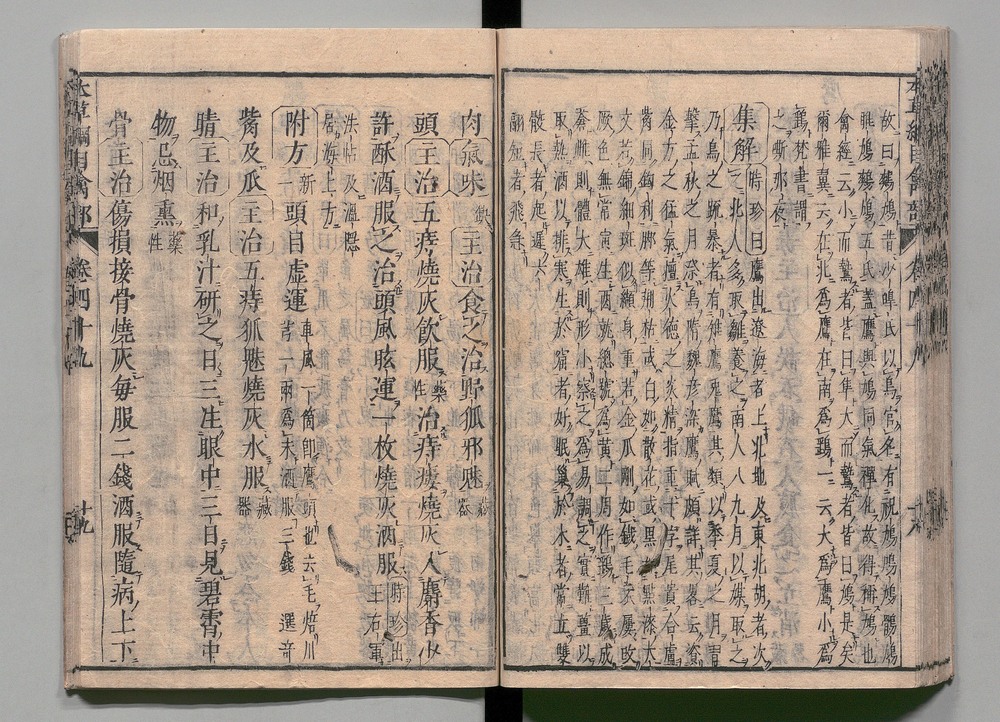 故曰鷞鳩昔少皥氏以鳥官名有祝鳩鳲鳩鶻鳩
鵙鳩鷞鳩五氏蓋鷹與鳩同氣禪化故得稱鳩也
禽經云小而鷙者皆曰隼大而鷙者皆曰鳩是矣
爾雅翼云在北爲鷹在南爲鷂一云大爲鷹小爲
鷂梵書謂
之嘶那夜
集解時珍曰鷹出遼海者上北地及東北胡者次
之北人多取雛養之南人八九月以媒取之
乃鳥之疏暴者有雉鷹兔鷹其類以季夏之月習
擊孟秋之月祭鳥隋魏彥深鷹賦頗詳其畧云資
金方之猛氣擅火德之炎精指重十字尾貴合盧
觜同鉤利脚等荊枯或白如散花或黑如點漆大
文若錦細斑似纈身重若金爪剛如鐵毛衣屢改
厥色無常寅生酉就總號爲黃二周作鷂三歲成
蒼雌則體大雄則形小察之爲易調之實難薑以
取熱酒以排寒生於窟者好眠巢於木者常立雙
骹長者起遲六
翮短者飛急
肉氣味主治食之治野狐邪魅藏器
頭主治五痔燒灰飲服藥性治痔瘻燒灰入麝香少
許酥酒服之治頭風眩運一枚燒灰酒服時珍出王右軍
法帖及溫隱
居海上方
附方新一頭目虛運車風一箇即鷹頭也去毛焙川芎一兩爲末酒服三錢 選奇
觜及爪主治五痔狐魅燒灰水服藏器
睛主治和乳汁研之日三注眼中三日見碧霄中
物忌烟熏藥性
骨主治傷損接骨燒灰每服二錢酒服隨病上下
卷四十九
十九